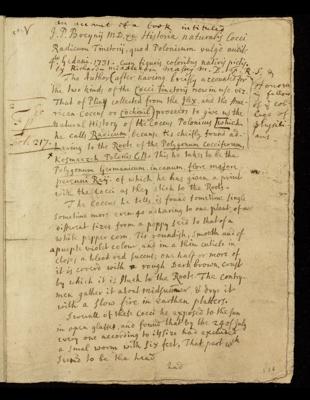 An account of a book intituled
J.P. Breynij M.D. &c. Historia naturalis Cocci
Radicum Tinctorij, quod Polonicum vulgo audit
4° Gedani. 1731. Cum figuris coloribus nativis
by Richard Middleton Massey M.D. F.R.S. &
Honorary fellow of ye Colege of physicians
The Author after having briefly accounted for
the two kinds of the Cocci Tinctorij now in use viz.
That of Pliny collected from the Ilex, and the American Coccus or Cochinil proceeds to give us the
Natural History of the Coccus Polonicus which
he calls Radicum because tis chiefly found adhering to the Roots of the Polygonum Cocciferum,
Polygonum Germanicum incanum flore majore
Raij. of which he has given a print
with the Cocci as they stick to the Roots.
The Coccus he tells is found sometime single
sometime more even 40 adhering to one plant of
different sizes from a poppy seed to that of a
white pepper corn. Tis roundish, smooth and of
a purple violet colour and in a thin cuticle in
closes a blood red succus; one half or more of
it is coverd with a rough dark brown crust
by which it is stuck to the Roots. The Contrymen gather it about midsummer & drys it
with a slow fire in earthen platters.
Severall of these Cocci he exposed to the sun
in open glasses, and found that by the 24 of July
every one according to its size had excluded
a small worm with six feet. That part wch
seem'd to be the head
had
217.